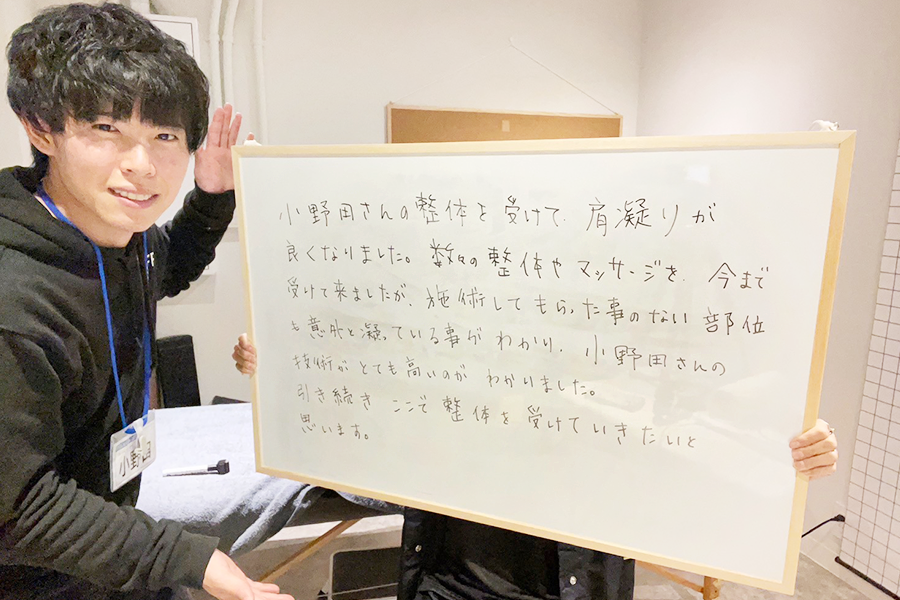 小野田さんの整体を受けて、肩凝りが
良くなりました。数々の整体やマッサージを、今まで
受けて来ましたが、施術してもらった事のない部位
も意外と凝っている事がわかり、小野田さんの
技術がとても高いのがわかりました。
引き続きここで整体を受けていきたいと
思います。
小野田